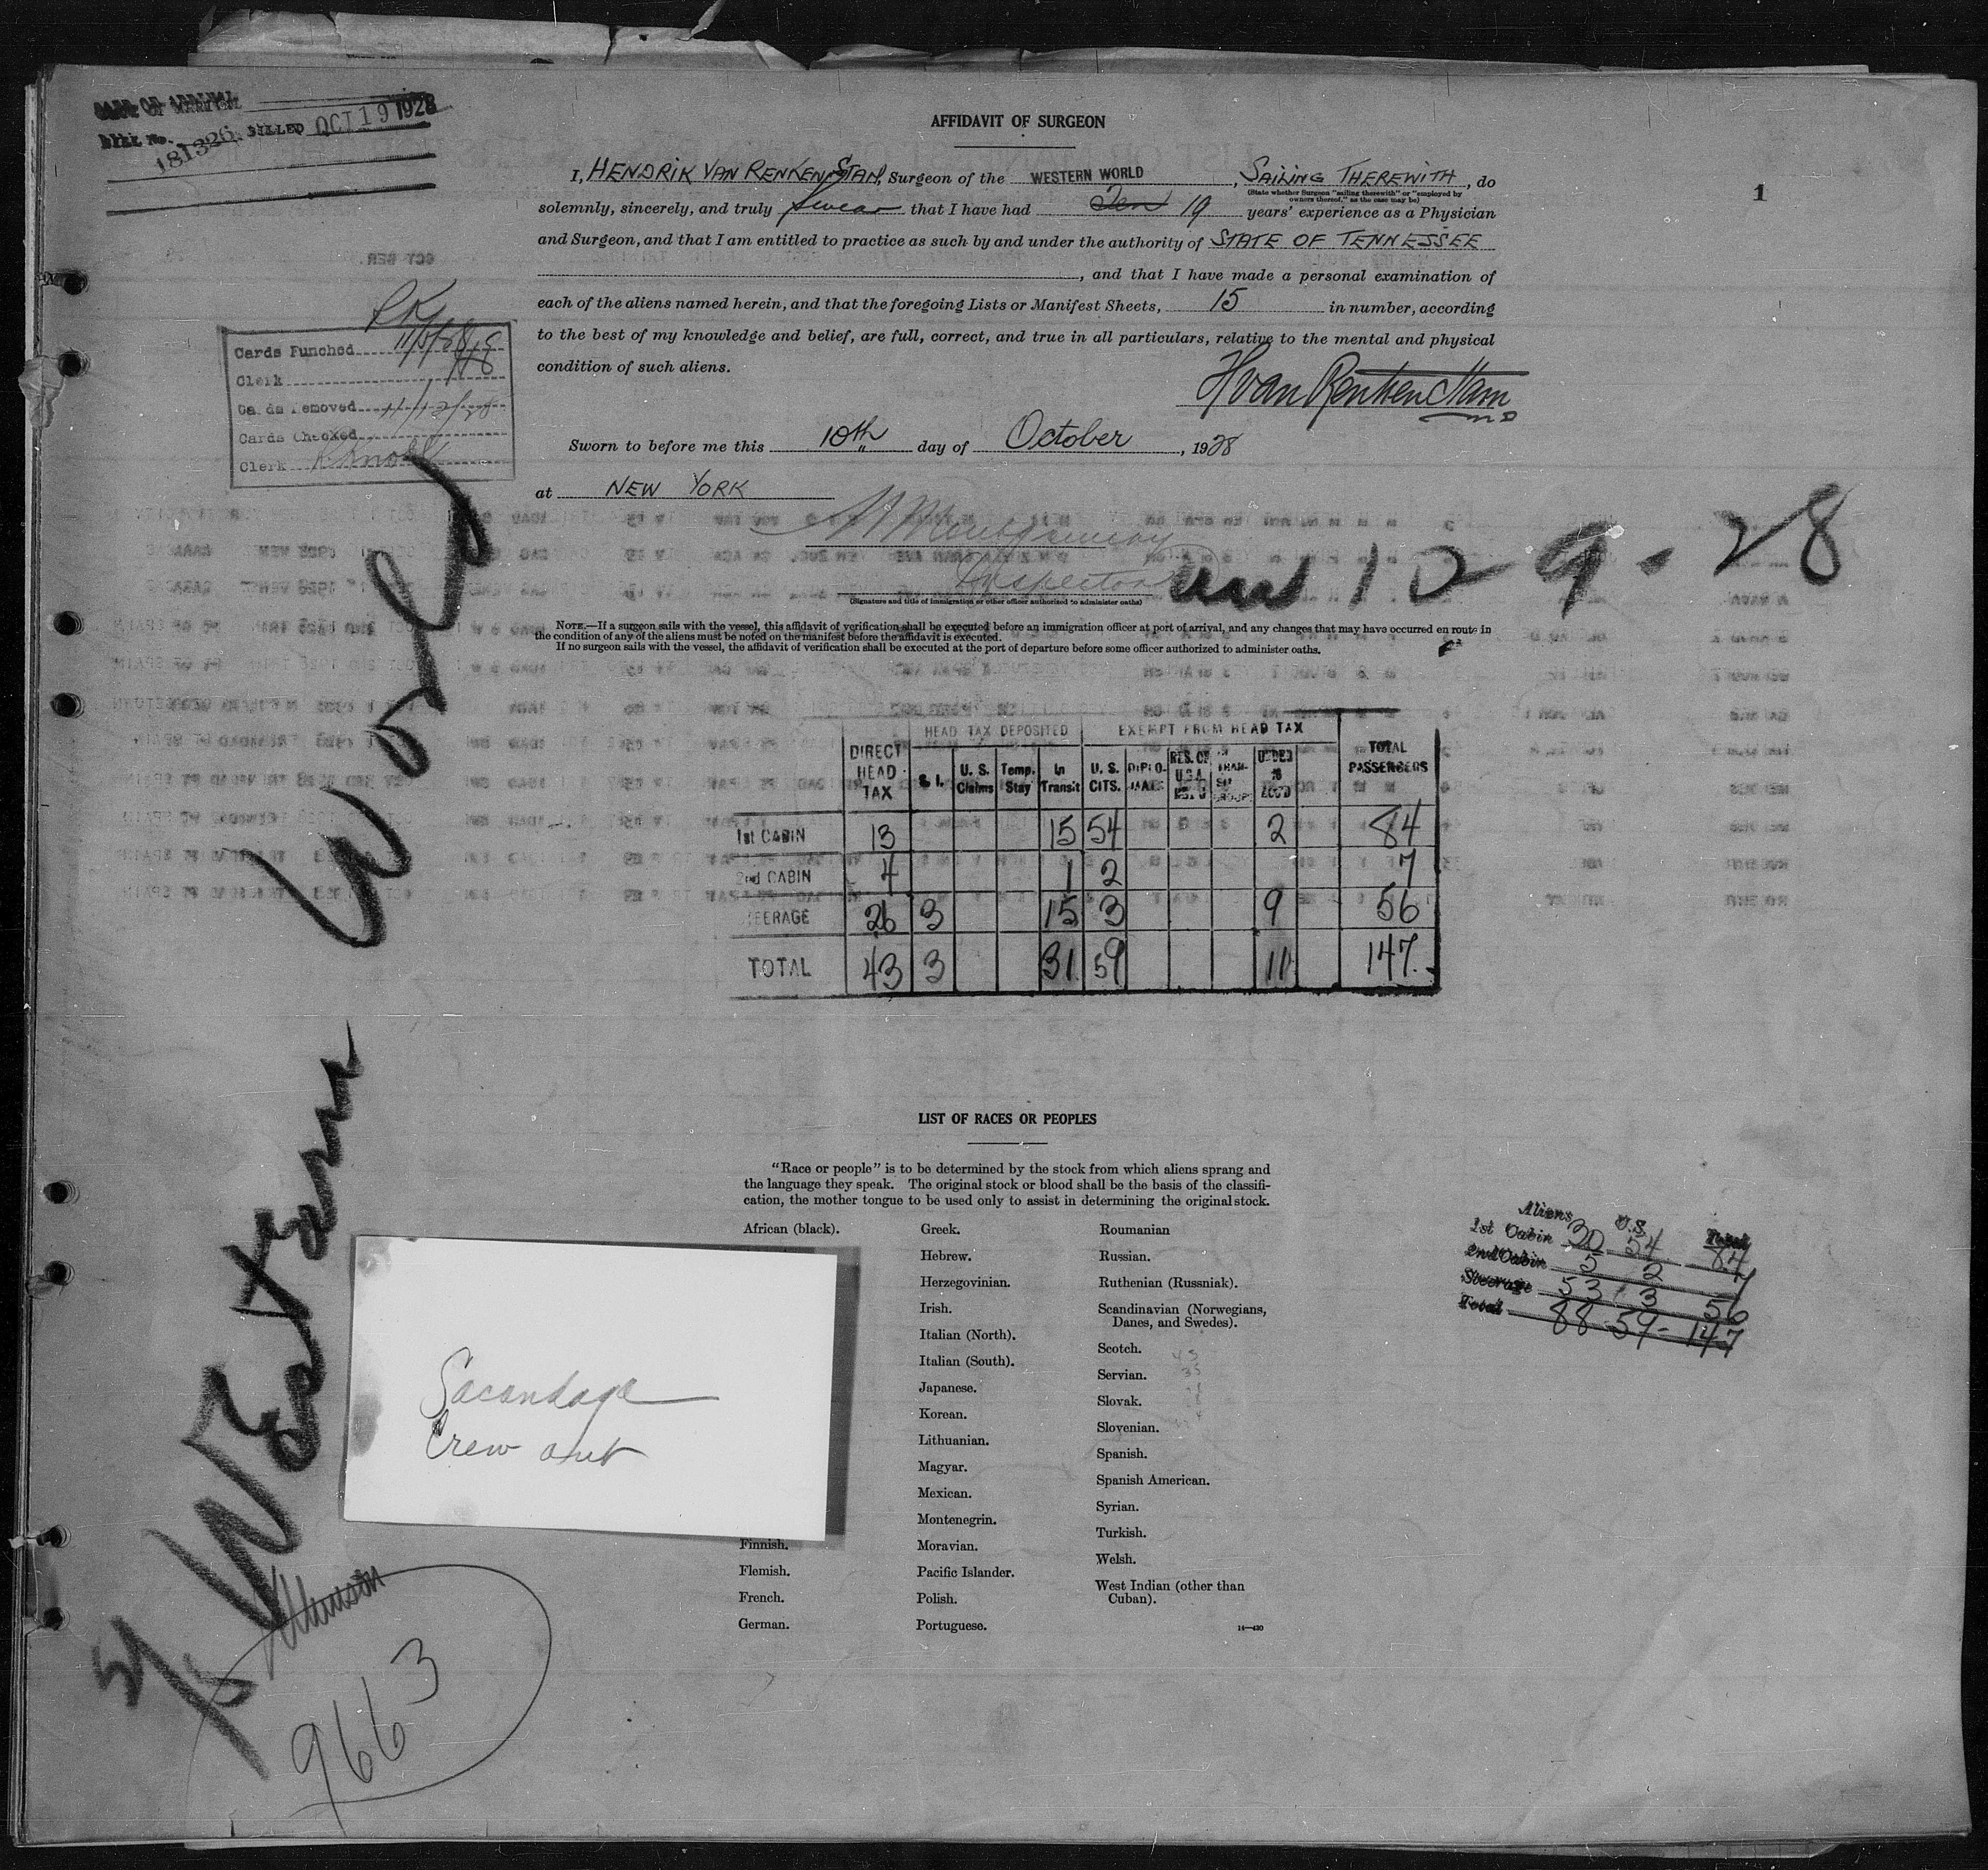 BILL No. 181326 BILLED OCT 19 1928
AFFIDAVIT OF SURGEON
I, HENDRIK VAN RENKEN STAM, Surgeon of the WESTERN WORLD, SAILING THEREWITH, do
(State whether Surgeon "sailing therewith" or "employed by
owners thereof," as the case may be)
solemnly, sincerely, and truly swear that I have had Ten 19 years' experience as a Physician
and Surgeon, and that I am entitled to practice as such by and under the authority of STATE OF TENNESSEE
, and that I have made a personal examination of
each of the aliens named herein, and that the foregoing Lists or Manifest Sheets, 15 in number, according
to the best of my knowledge and belief, are full, correct, and true in all particulars, relative to the mental and physical
condition of such aliens.
H van Renken Stam
MD
Sworn to before me this 10th day of October, 1928
at NEW YORK
Inspector
(Signature and title of immigration or other officer authorized to administer oaths)
NOTE.—If a surgeon sails with the vessel, this affidavit of verification shall be executed before an immigration officer at port of arrival, and any changes that may have occurred en route in
the condition of any of the aliens must be noted on the manifest before the affidavit is executed.
If no surgeon sails with the vessel, the affidavit of verification shall be executed at the port of departure before some officer authorized to administer oaths.
1
Cards Punched
Clerk
Cards Removed
Cards Checked
Clerk
10-9-28
Western World
HEAD TAX DEPOSITED EXEMPT FROM HEAD TAX
DIRECT HEAD TAX S. I. U. S. Claims Temp. Stay In Transit U. S. CITS. DIPLOMATS RES. OF U.S.A. TRANSIT GROUPS UNDER 16 ACC'D TOTAL PASSENGERS
1st CABIN 13 15 54 2 84
2nd CABIN 4 1 2 7
STEERAGE 26 3 15 3 9 56
TOTAL 43 3 31 59 11 147
LIST OF RACES OR PEOPLES
"Race or people" is to be determined by the stock from which aliens sprang and
the language they speak. The original stock or blood shall be the basis of the classifi-
cation, the mother tongue to be used only to assist in determining the original stock.
African (black).
Finnish.
Flemish.
French.
German.
Greek.
Hebrew.
Herzegovinian.
Irish.
Italian (North).
Italian (South).
Japanese.
Korean.
Lithuanian.
Magyar.
Mexican.
Montenegrin.
Moravian.
Pacific Islander.
Polish.
Portuguese.
Roumanian
Russian.
Ruthenian (Russniak).
Scandinavian (Norwegians,
Danes, and Swedes).
Scotch.
Servian.
Slovak.
Slovenian.
Spanish.
Spanish American.
Syrian.
Turkish.
Welsh.
West Indian (other than
Cuban).
14—430
Aliens U.S. Total
1st Cabin 30 54 84
2nd Cabin 5 2 7
Steerage 53 3 56
Total 88 59 147
Sacandaga
Crew out
Munson
9663